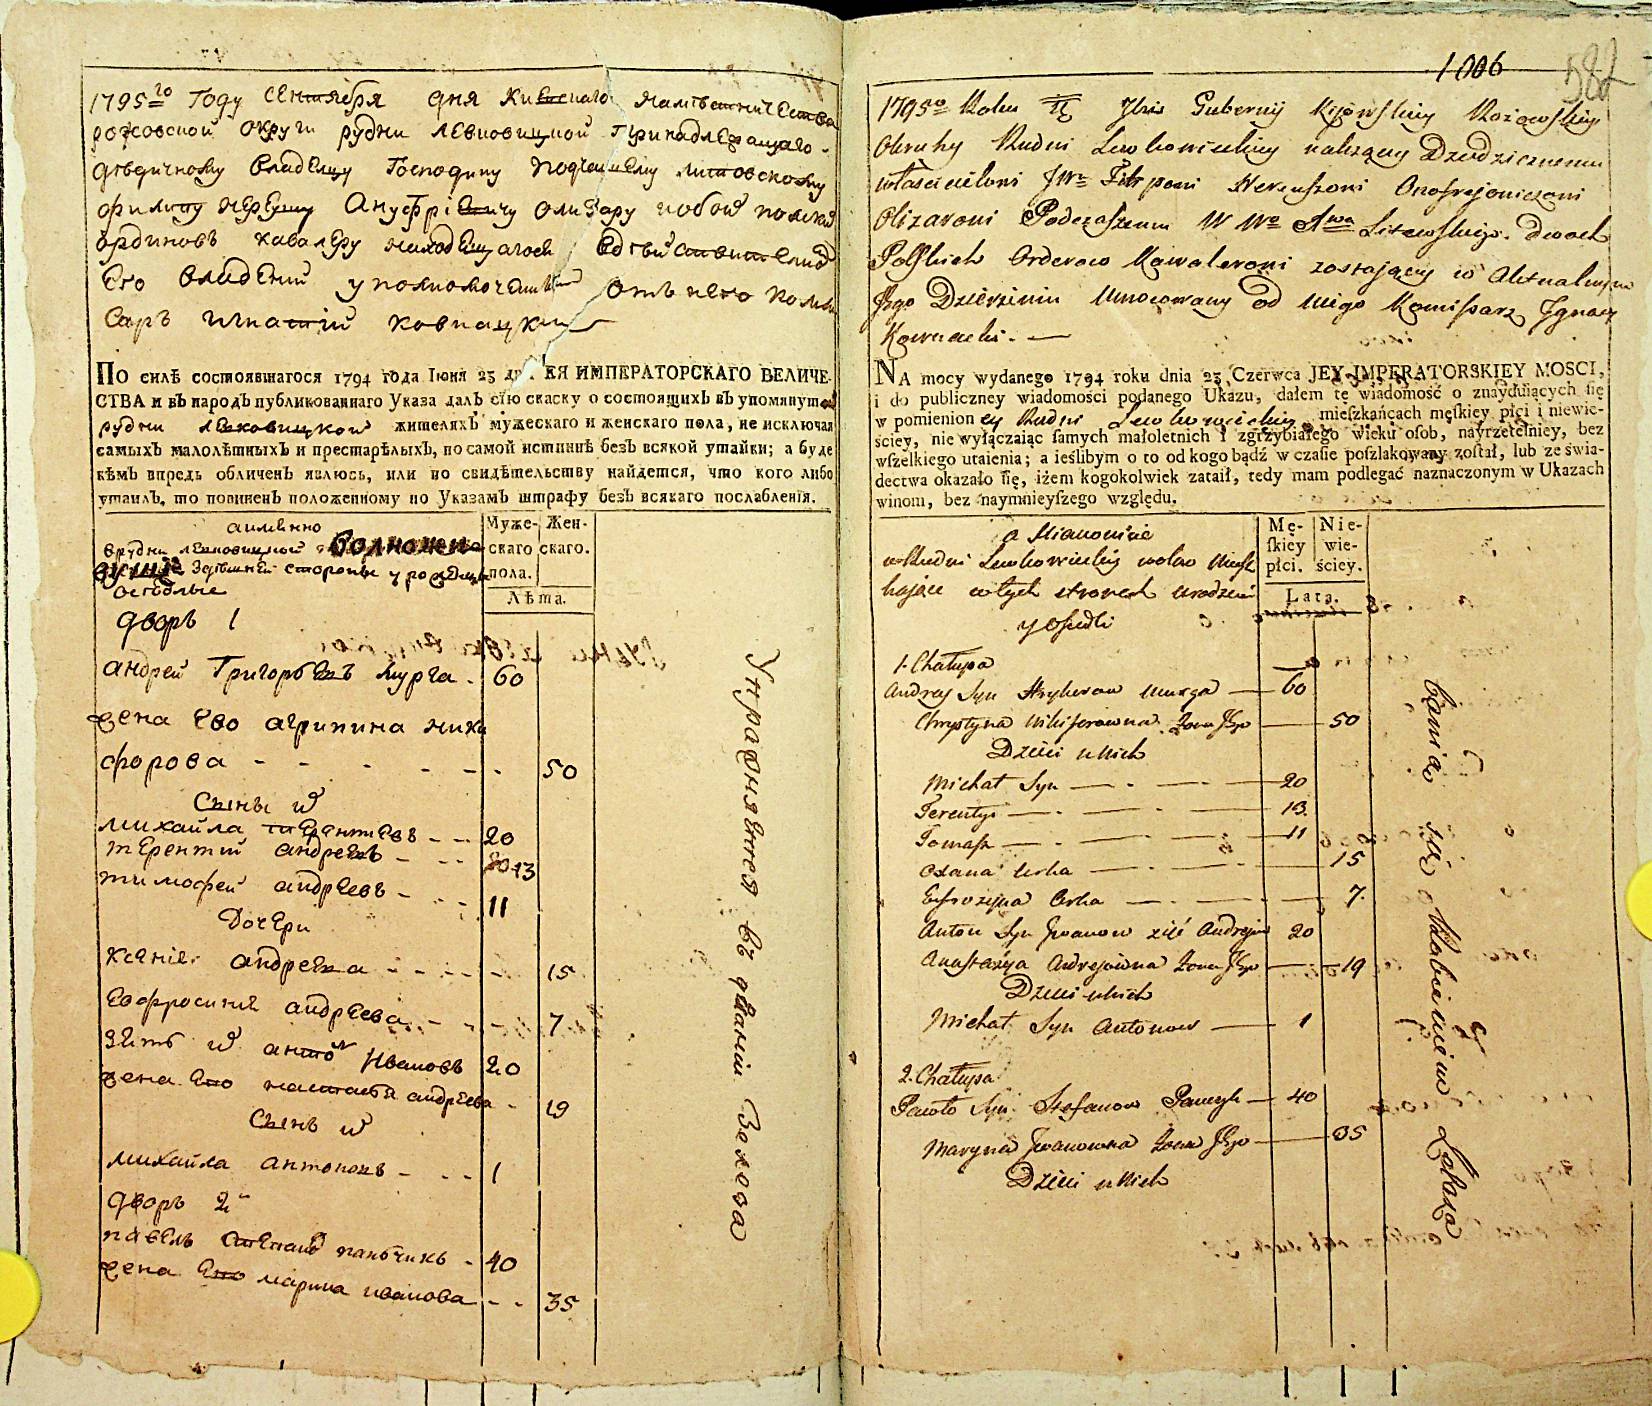 1795го Году Сентября дня Киевского намѣстничества
рожовской округи рудни левковицкой принадлежащаго
дѣдичному владелцу Господину Подчашему литовскому
филипу нереушу Ануфріевичу Олизару обоих полских
ординовъ кавалеру находящагося в действителном
Его владении уполномоченный отъ него комми
саръ игнатій ковнацкий
ПО силѣ состоявшагося 1794 года Іюня 23 дня ЕЯ ИМПЕРАТОРСКАГО ВЕЛИЧЕ-
СТВА и въ народъ публикованнаго Указа далъ сїю скаску о состоящихъ въ упомянутой
рудни левковицкой жителяхъ мужескаго и женскаго пола, не исключая
самыхъ малолѣтныхъ и престарѣлыхъ, по самой истиннѣ безъ всякой утайки; а буде
кѣмъ впредь обличенъ явлюсь, или по свидѣтельству найдется, что кого либо
утаилъ, то повиненъ положенному по Указамъ штрафу безъ всякаго послабленія.
аименно
Муже- Жен-
скаго скаго.
пола.
Лѣта.
врудни левковицкой волножи
вущие здешней стороны урожденцы
оселые
дворъ 1
андрей Григорьевъ мурга - 60
жена Ево агрипина ники
форова - - - - - - 50
Сыны их
михайла терентиевъ - - 20
терентий андреевъ - - - 13
тимофей андреевъ - - - 11
Дочери
ксения андреева - - - - - 15
Евфросиния андреева - - - 7
зять их антон Ивановъ 20
жена Его настасья андреева - 19
Сынъ их
михайла антоновъ - - - 1
дворъ 2й
павелъ степановъ панчикъ - 40
жена Его марина иванова - - 35
Упражняется въ деланіи Железа
1006
582
1795o Roku Dnia Gubernij Kijowskiey Rożowskiey
Okruhy Rudni Lewkowickiey należący Dziedzicznemu
właścicielowi JWo Filipowi Nereuszowi Onofrejowiczowi
Olizarowi Podczaszemu W. Wo Xwa Litewskiego. Dwoch
Polskich Orderow Kawalerowi zostający w Aktualnym
Jego Dzierżeniu Umocowany od niego Komissarz Jgnacy
Kownacki. —
NA mocy wydanego 1794 roku dnia 23 Czerwca JEY IMPERATORSKIEY MOSCI,
i do publiczney wiadomości podanego Ukazu, dałem tę wiadomość o znayduiących się
w pomienioney Rudni Lewkowickiey mieszkańcach męskiey płci i niewie-
ściey, nie wyłączaiąc samych małoletnich i zgrzybiałego wieku osob, nayrzetelniey, bez
wszelkiego utaienia; a ieślibym o to od kogo bądź w czasie poszlakowany został, lub ze świa-
dectwa okazało się, iżem kogokolwiek zataił, tedy mam podlegać naznaczonym w Ukazach
winom, bez naymnieyszego względu.
a Mianowicie
Mę- Nie-
skiey wie-
płci. ściey.
Lata.
w Rudni Lewkowickiey wolno Miesz
kające w tych stronach urodzeni
y Osiedli
1. Chałupa
Andrey Syn Hryhorow Murga — 60
Chrystyna Nikiforowna Żona Jego — 50
Dzieci u Nich
Michał Syn — - — 20
Terentyi — - — 13
Tomasz — - — 11
Oxana Corka — 15
Eufrozyna Corka — - — 7.
Anton Syn Jwanow zięć Andrejow 20
Anastazya Andrejowna Żona Jego — 19
Dzieci u Nich
Michał Syn Antonow — 1
2. Chałupa
Pawło Syn Stefanow Panczyk — 40
Maryna Jwanowna Żona Jego — 35
Dzieci u Nich
bawią się Robieniem Żelaza